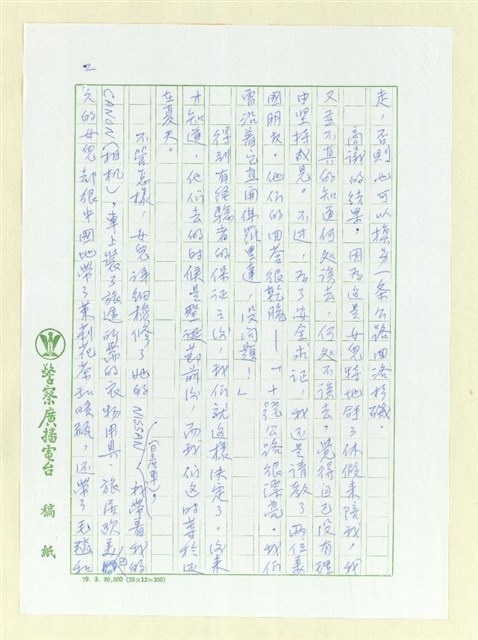 走，否則也可以換另一条公路回洛杉磯。
商議的結果，因為這是女兒特地請了休假來陪我，我
又並不真的知道何处該去，何处不該去，覺得自己沒有理
由坚持成見。不过，為了安全求証，我还是請教了兩位美
國朋友。他们的回答很乾脆——「十號公路很漂亮。我们
曾沿着它直開佛羅里達，沒問題！」
得到有经驗者的保証之後，我们就這樣決定了。後来
才知道，他们去的時候是聖誕節前後，而我们這時等於正
在夏天。
不管怎樣，女兒詳細檢修了她的NISSAN（自產車），我帶着我的
CANON（相机）。車上裝了旅途所需的衣物用具。旅居欧美
的女兒却很中國地帶了茉莉花茶和暖瓶，还帶了毛毯和
二
警察廣播電台 稿紙
79. 3. 50,000 (25×12=300)